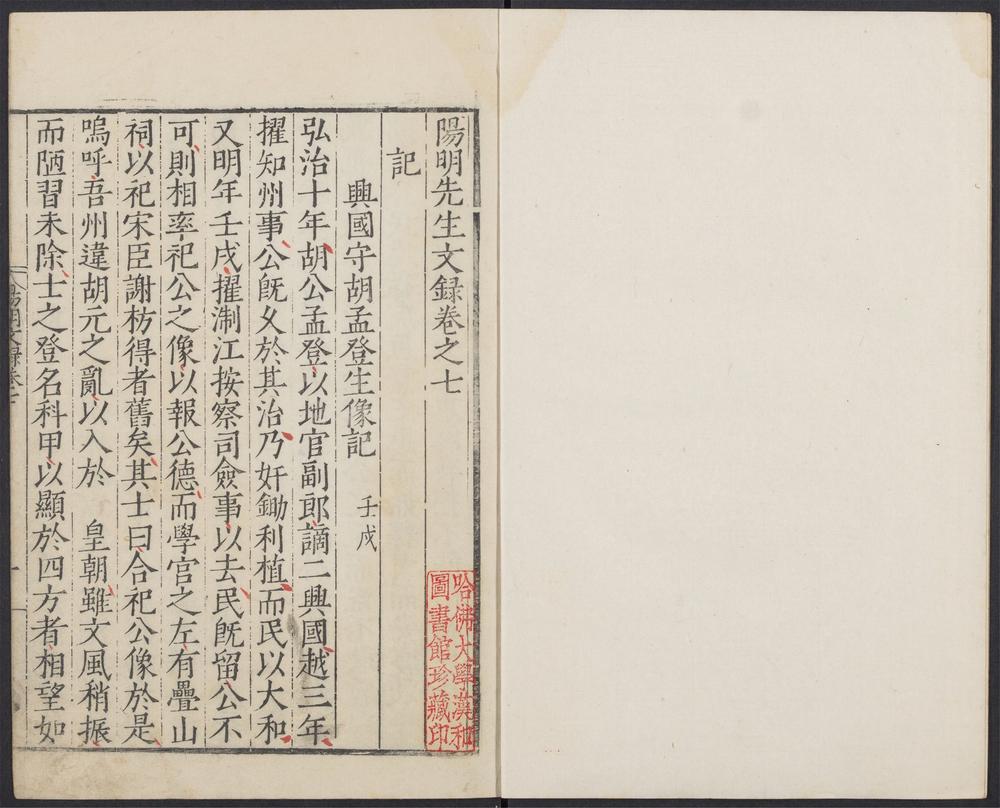 陽明先生文録卷之七
記
興國守胡孟登生像記 壬戌
弘治十年胡公孟登以地官副郎謫二興國越三年
擢知州事公旣久於其治乃奸鋤利植而民以大和
又明年壬戌擢淛江按察司僉事以去民旣留公不
可則相率祀公之像以報公德而學官之左有疊山
祠以祀宋臣謝枋得者舊矣其士曰合祀公像於是
嗚呼吾州違胡元之亂以入於 皇朝雖文風稍振
而陋習未除士之登名科甲以顯於四方者相望如
哈佛大學漢和
圖書館珍藏印